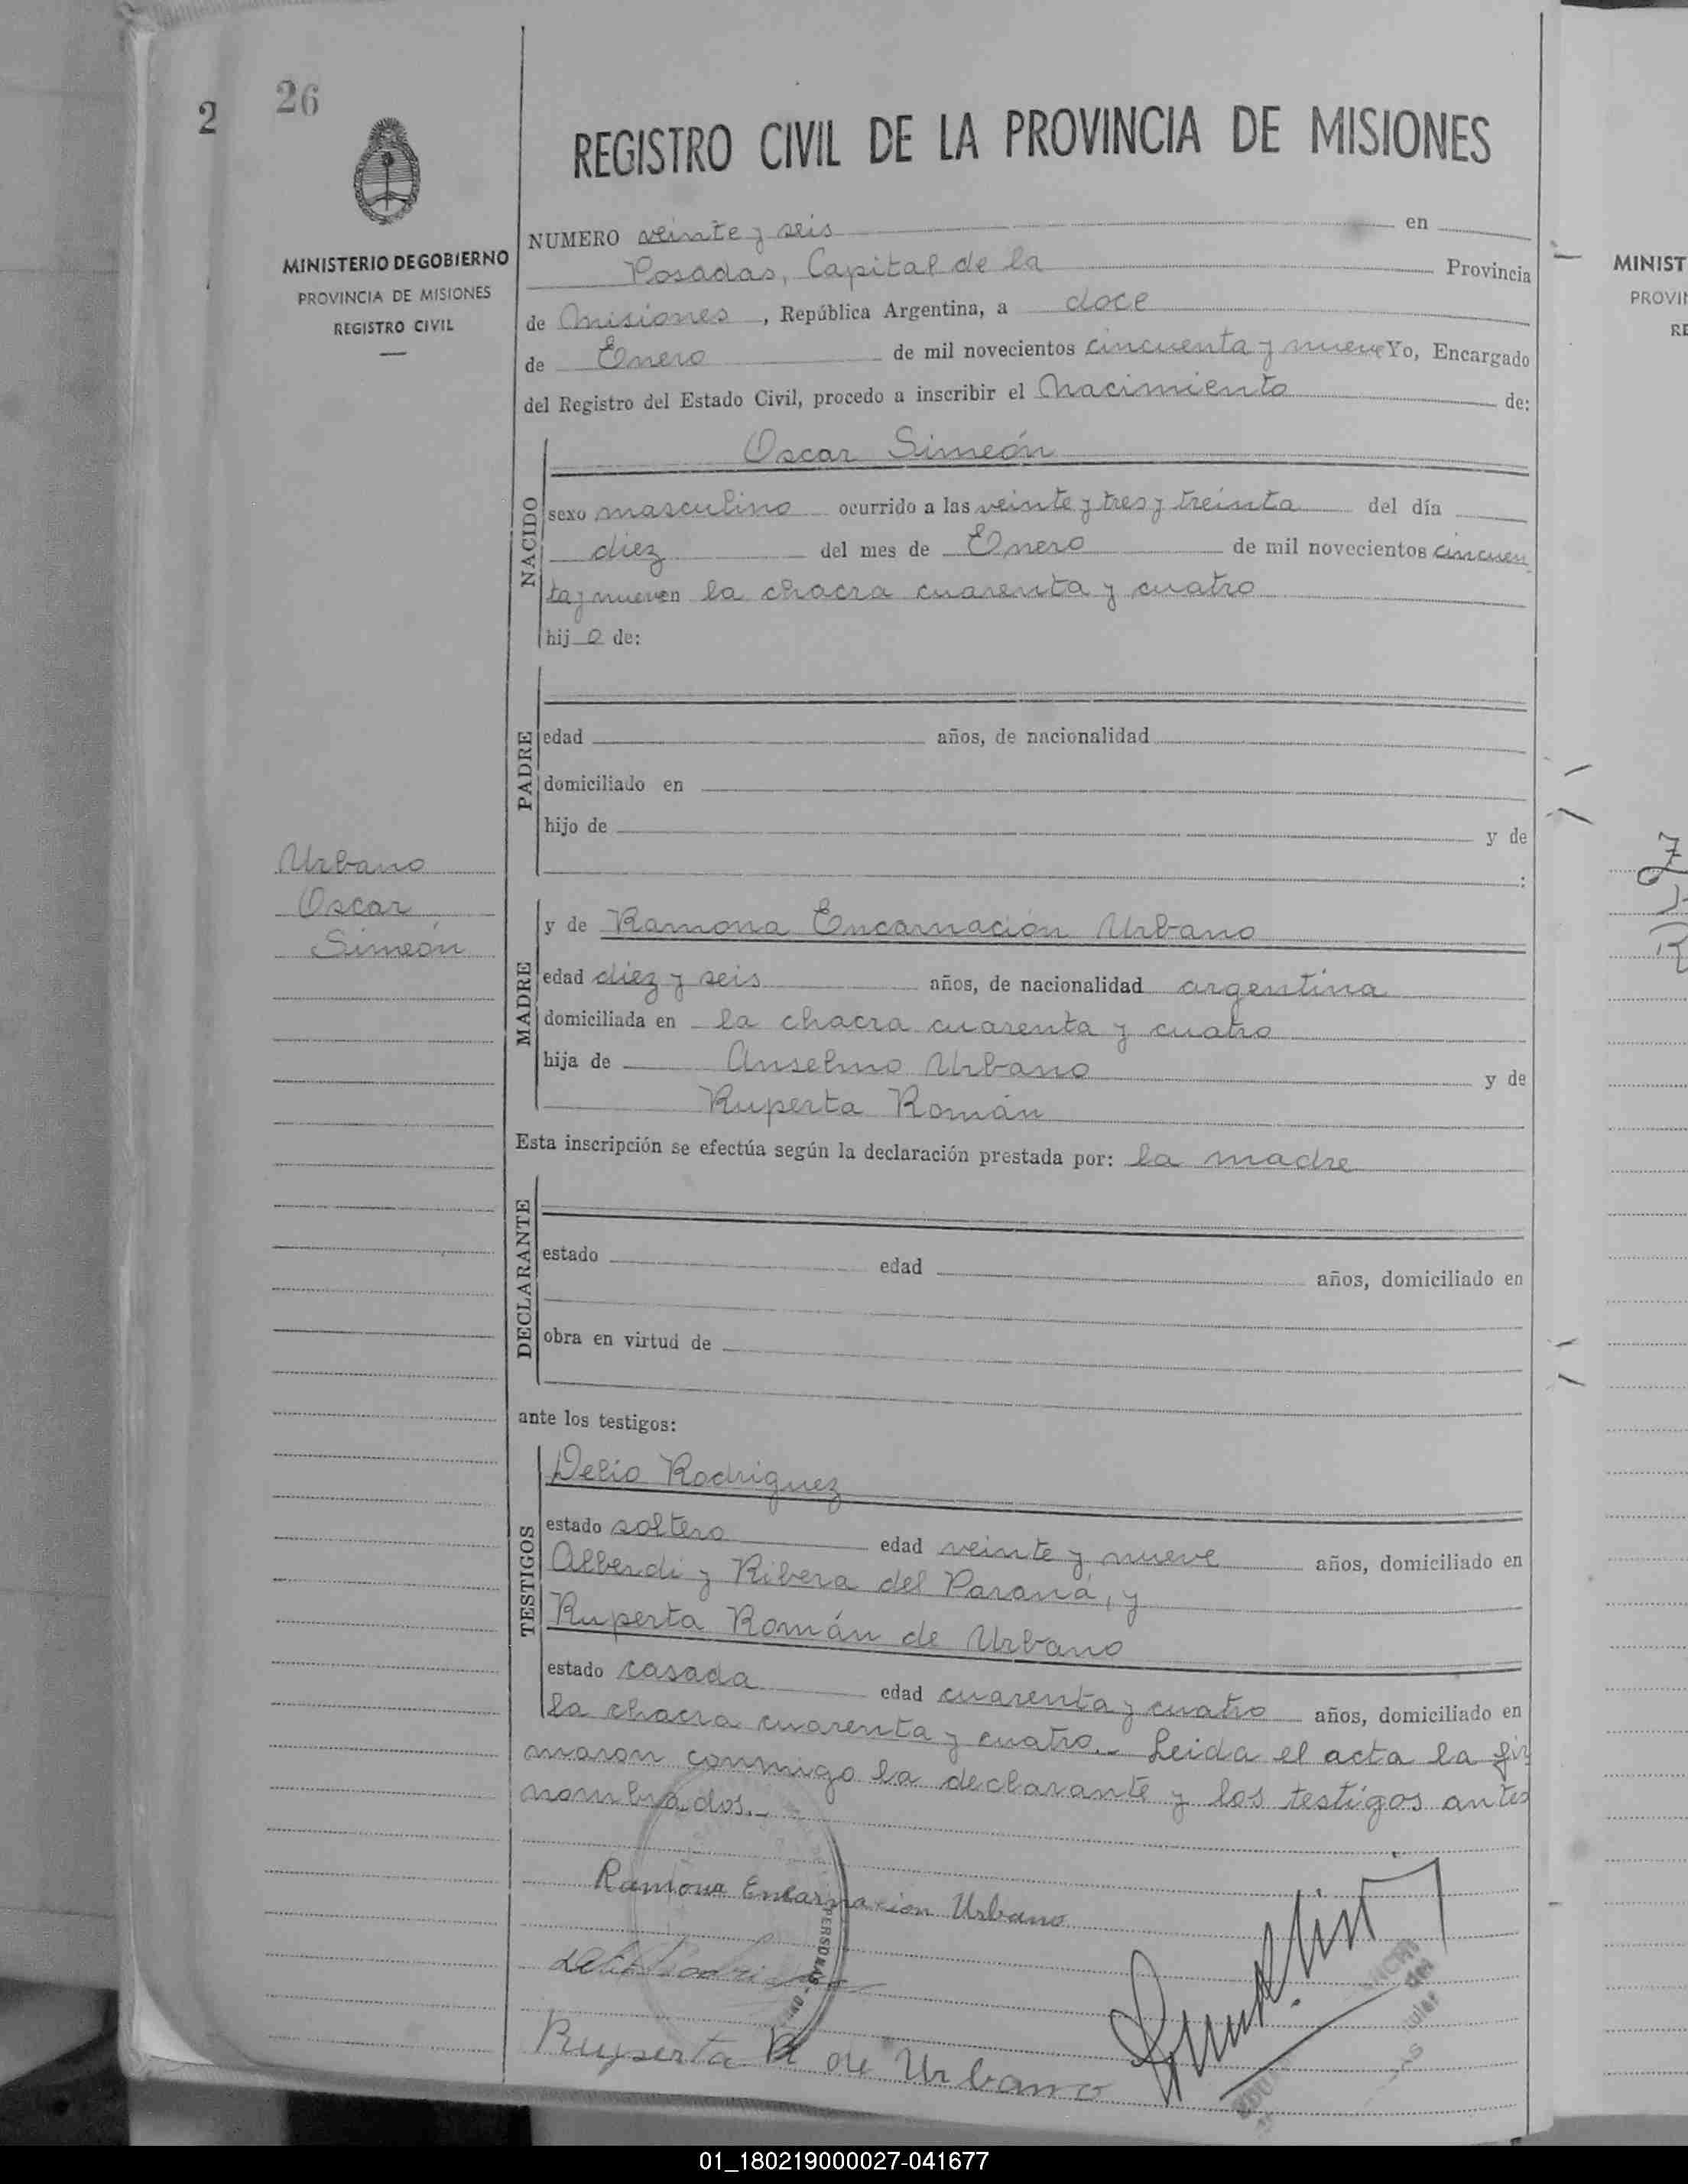 2 26
REGISTRO CIVIL DE LA PROVINCIA DE MISIONES
MINISTERIO DE GOBIERNO
PROVINCIA DE MISIONES
REGISTRO CIVIL
NUMERO veinte y seis en
Posadas, Capital de la Provincia
de Misiones, República Argentina, a doce
de Enero de mil novecientos cincuenta y nueve Yo, Encargado
del Registro del Estado Civil, procedo a inscribir el Nacimiento de:
NACIDO
Oscar Simeón
sexo masculino ocurrido a las veinte y tres y treinta del día
diez del mes de Enero de mil novecientos cincuen
ta y nueve en la chacra cuarenta y cuatro
hijo de:
PADRE
edad años, de nacionalidad
domiciliado en
hijo de y de
:
Urbano
Oscar
Simeón
MADRE
y de Ramona Encarnación Urbano
edad diez y seis años, de nacionalidad argentina
domiciliada en la chacra cuarenta y cuatro
hija de Anselmo Urbano y de
Ruperta Román
Esta inscripción se efectúa según la declaración prestada por: la madre
DECLARANTE
estado edad años, domiciliado en
obra en virtud de
ante los testigos:
TESTIGOS
Delio Rodriguez
estado soltero edad veinte y nueve años, domiciliado en
Alberdi y Ribera del Paraná, y
Ruperta Román de Urbano
estado casada edad cuarenta y cuatro años, domiciliado en
la chacra cuarenta y cuatro.- Leida el acta la fir
maron conmigo la declarante y los testigos antes
nombrados.-
Ramona Encarnacion Urbano
Ruperta R de Urbano
PERSONAS
MINIST
PROVIN
RE
01_180219000027-041677